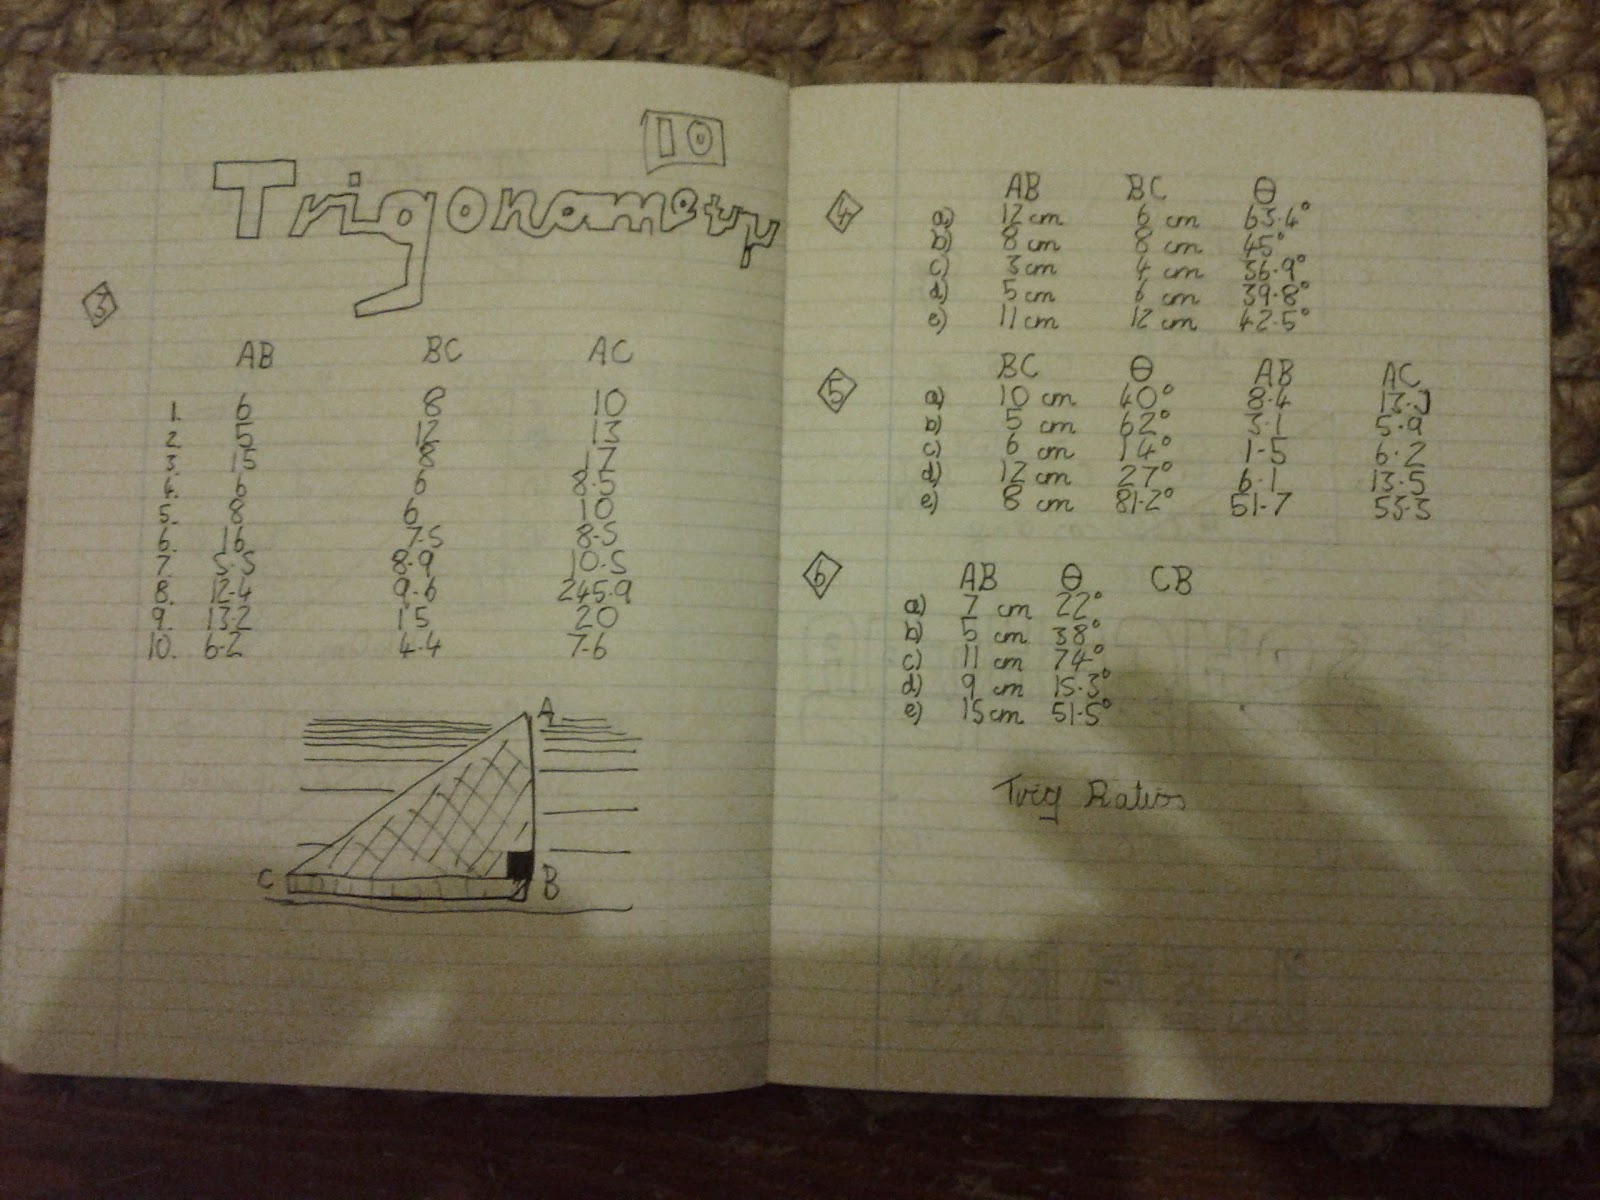 10
Trigonometry
3
AB BC AC
1. 6 8 10
2. 5 12 13
3. 15 8 17
4. 6 6 8.5
5. 8 6 10
6. 16 7.5 8.5
7. 5.5 8.9 10.5
8. 12.4 9.6 245.9
9. 13.2 15 20
10. 6.2 4.4 7.6
A
C B
4 AB BC θ
a) 12 cm 6 cm 63.4°
b) 8 cm 8 cm 45°
c) 3 cm 4 cm 36.9°
d) 5 cm 6 cm 39.8°
e) 11 cm 12 cm 42.5°
5 BC θ AB AC
a) 10 cm 40° 8.4
b) 5 cm 62° 3.1 5.9
c) 6 cm 14° 1.5 6.2
d) 12 cm 27° 6.1 13.5
e) 8 cm 81.2° 51.7 53.3
6 AB θ CB
a) 7 cm 22°
b) 5 cm 38°
c) 11 cm 74°
d) 9 cm 15.3°
e) 15 cm 51.5°
Trig Ratios